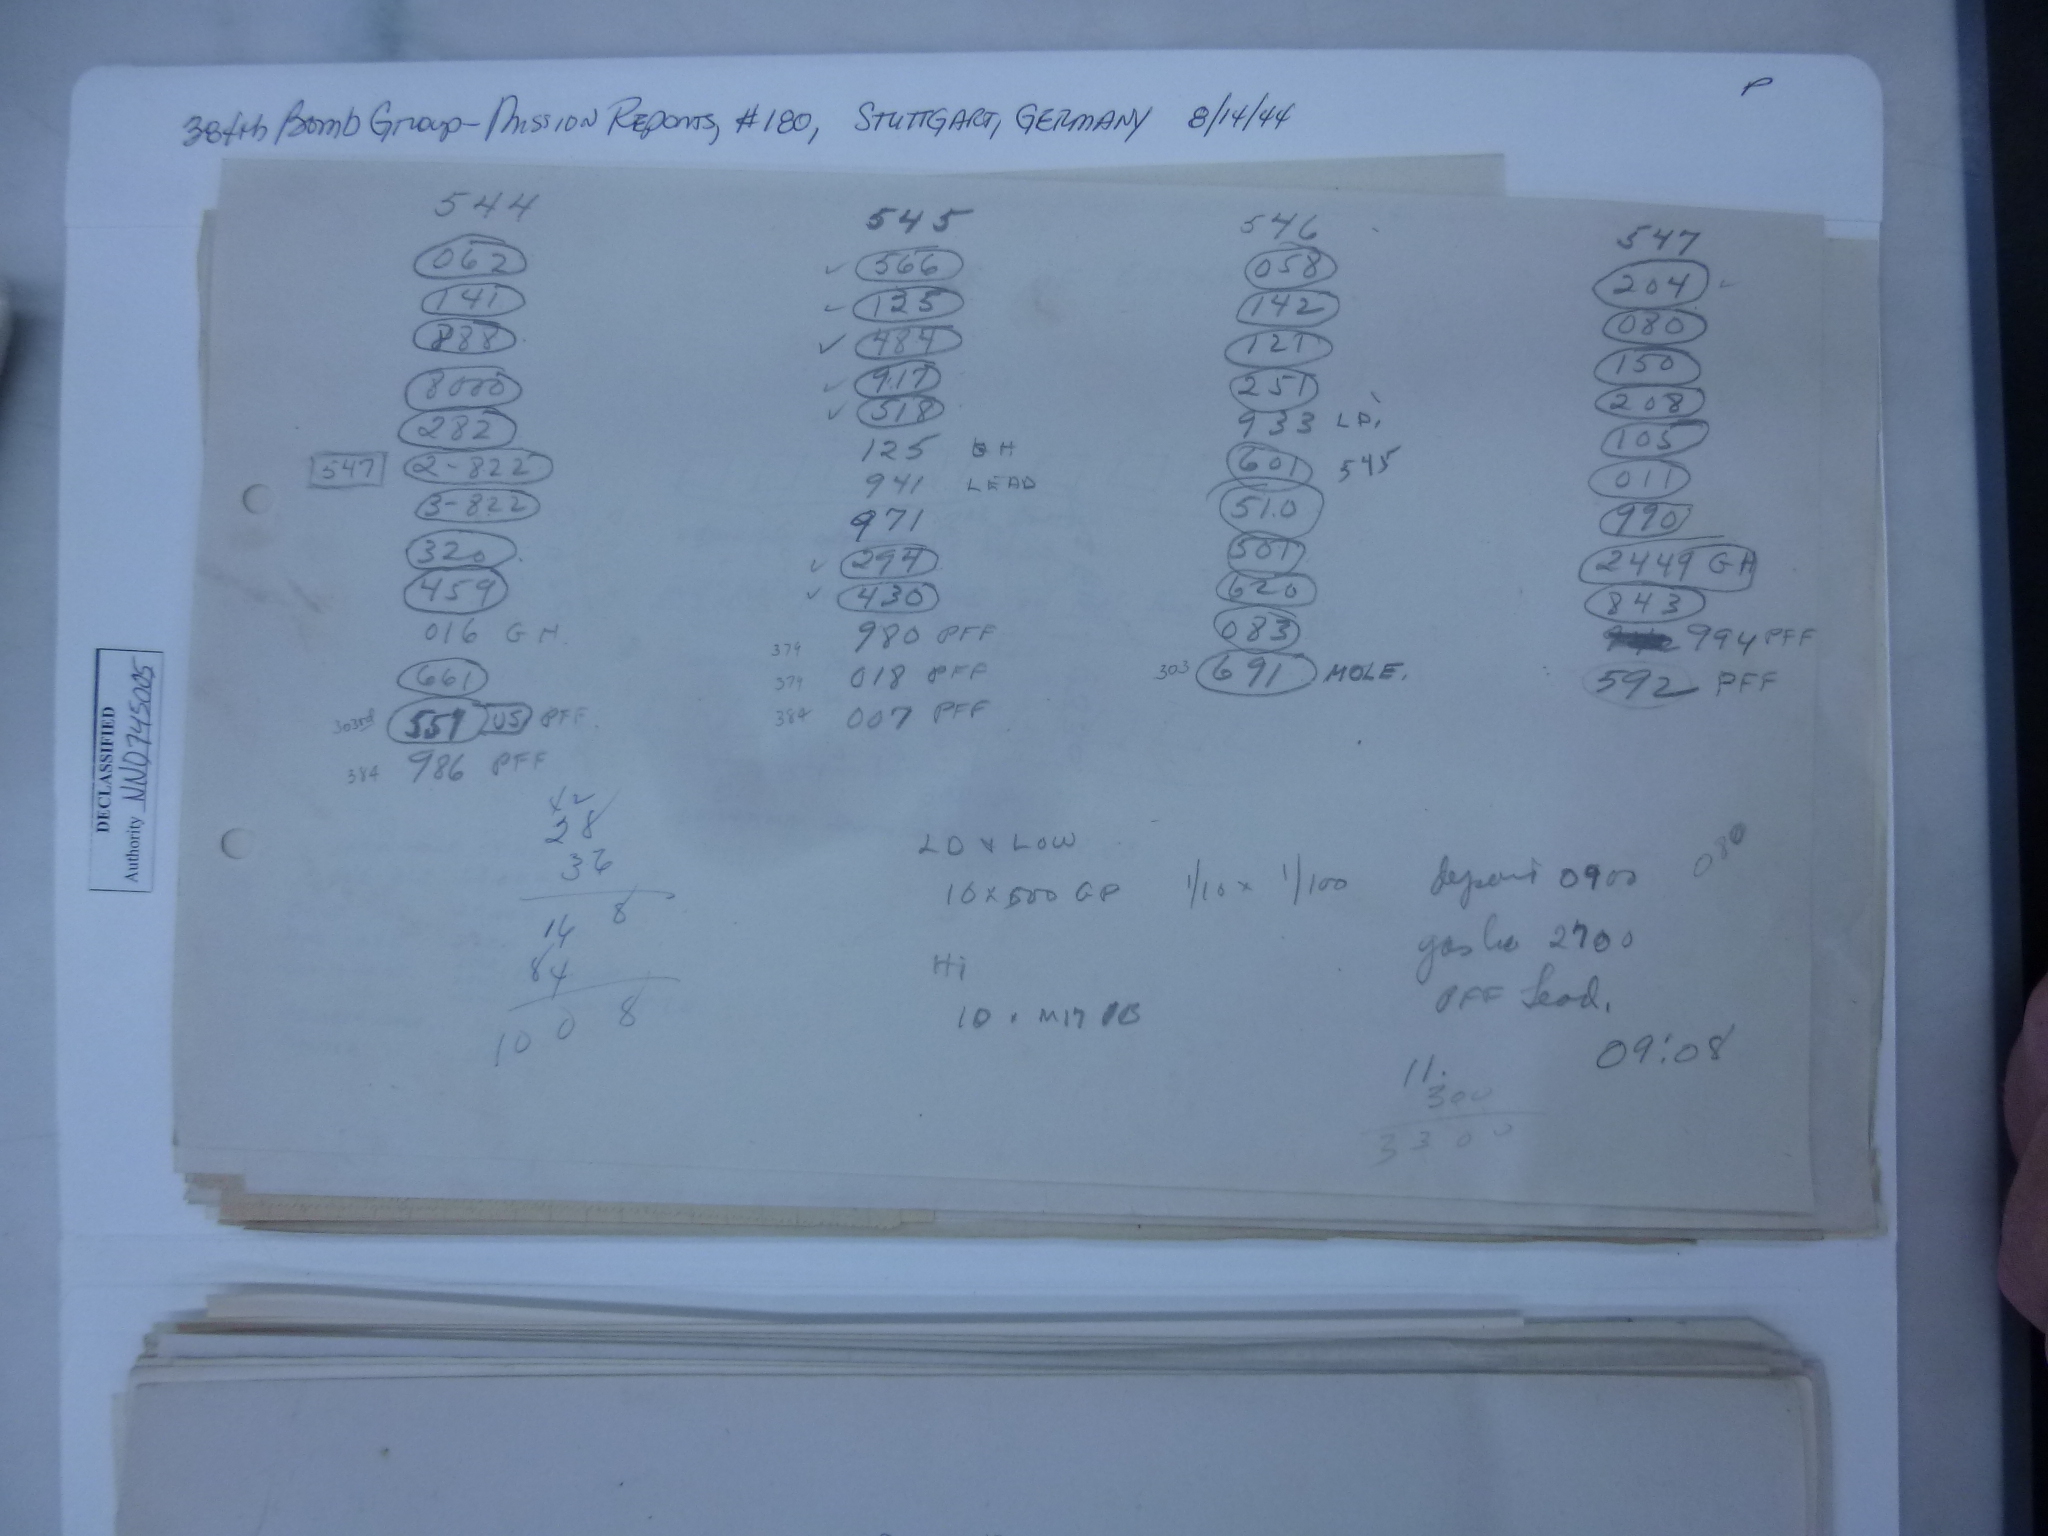 384th Bomb Group - Mission Reports, #180, Stuttgart, Germany 8/14/44
P
544
062
141
888
8000
282
547 2-822
3-822
320
459
016 GH.
661
303rd 557 US PFF.
384 986 PFF
545
✓ 566
✓ 125
✓ 484
✓ 917
✓ 518
125 GH
941 LEAD
971
✓ 294
✓ 430
379 980 PFF
379 018 PFF
384 007 PFF
546
058
142
121
251
933 LD.
601 545
510
501
620
083
303 691 MOLE.
547
204 ✓
080
150
208
105
011
990
2449 GH
843
994 PFF
592 PFF
28
36
8
84
10 0 8
LD & LOW
10 x 500 GP 1/10 x 1/100
Hi
10 . M17 IB
depart 0900
2700
PFF Lead.
09:08
080
11.
300
3300
DECLASSIFIED
Authority NND745005